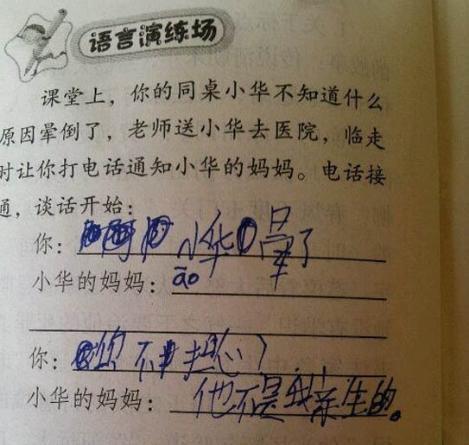 语言演练场
课堂上，你的同桌小华不知道什么
原因晕倒了，老师送小华去医院，临走
时让你打电话通知小华的妈妈。电话接
通，谈话开始：
你：小华晕了
小华的妈妈：āo
你：你不担心
小华的妈妈：他不是我亲生的。